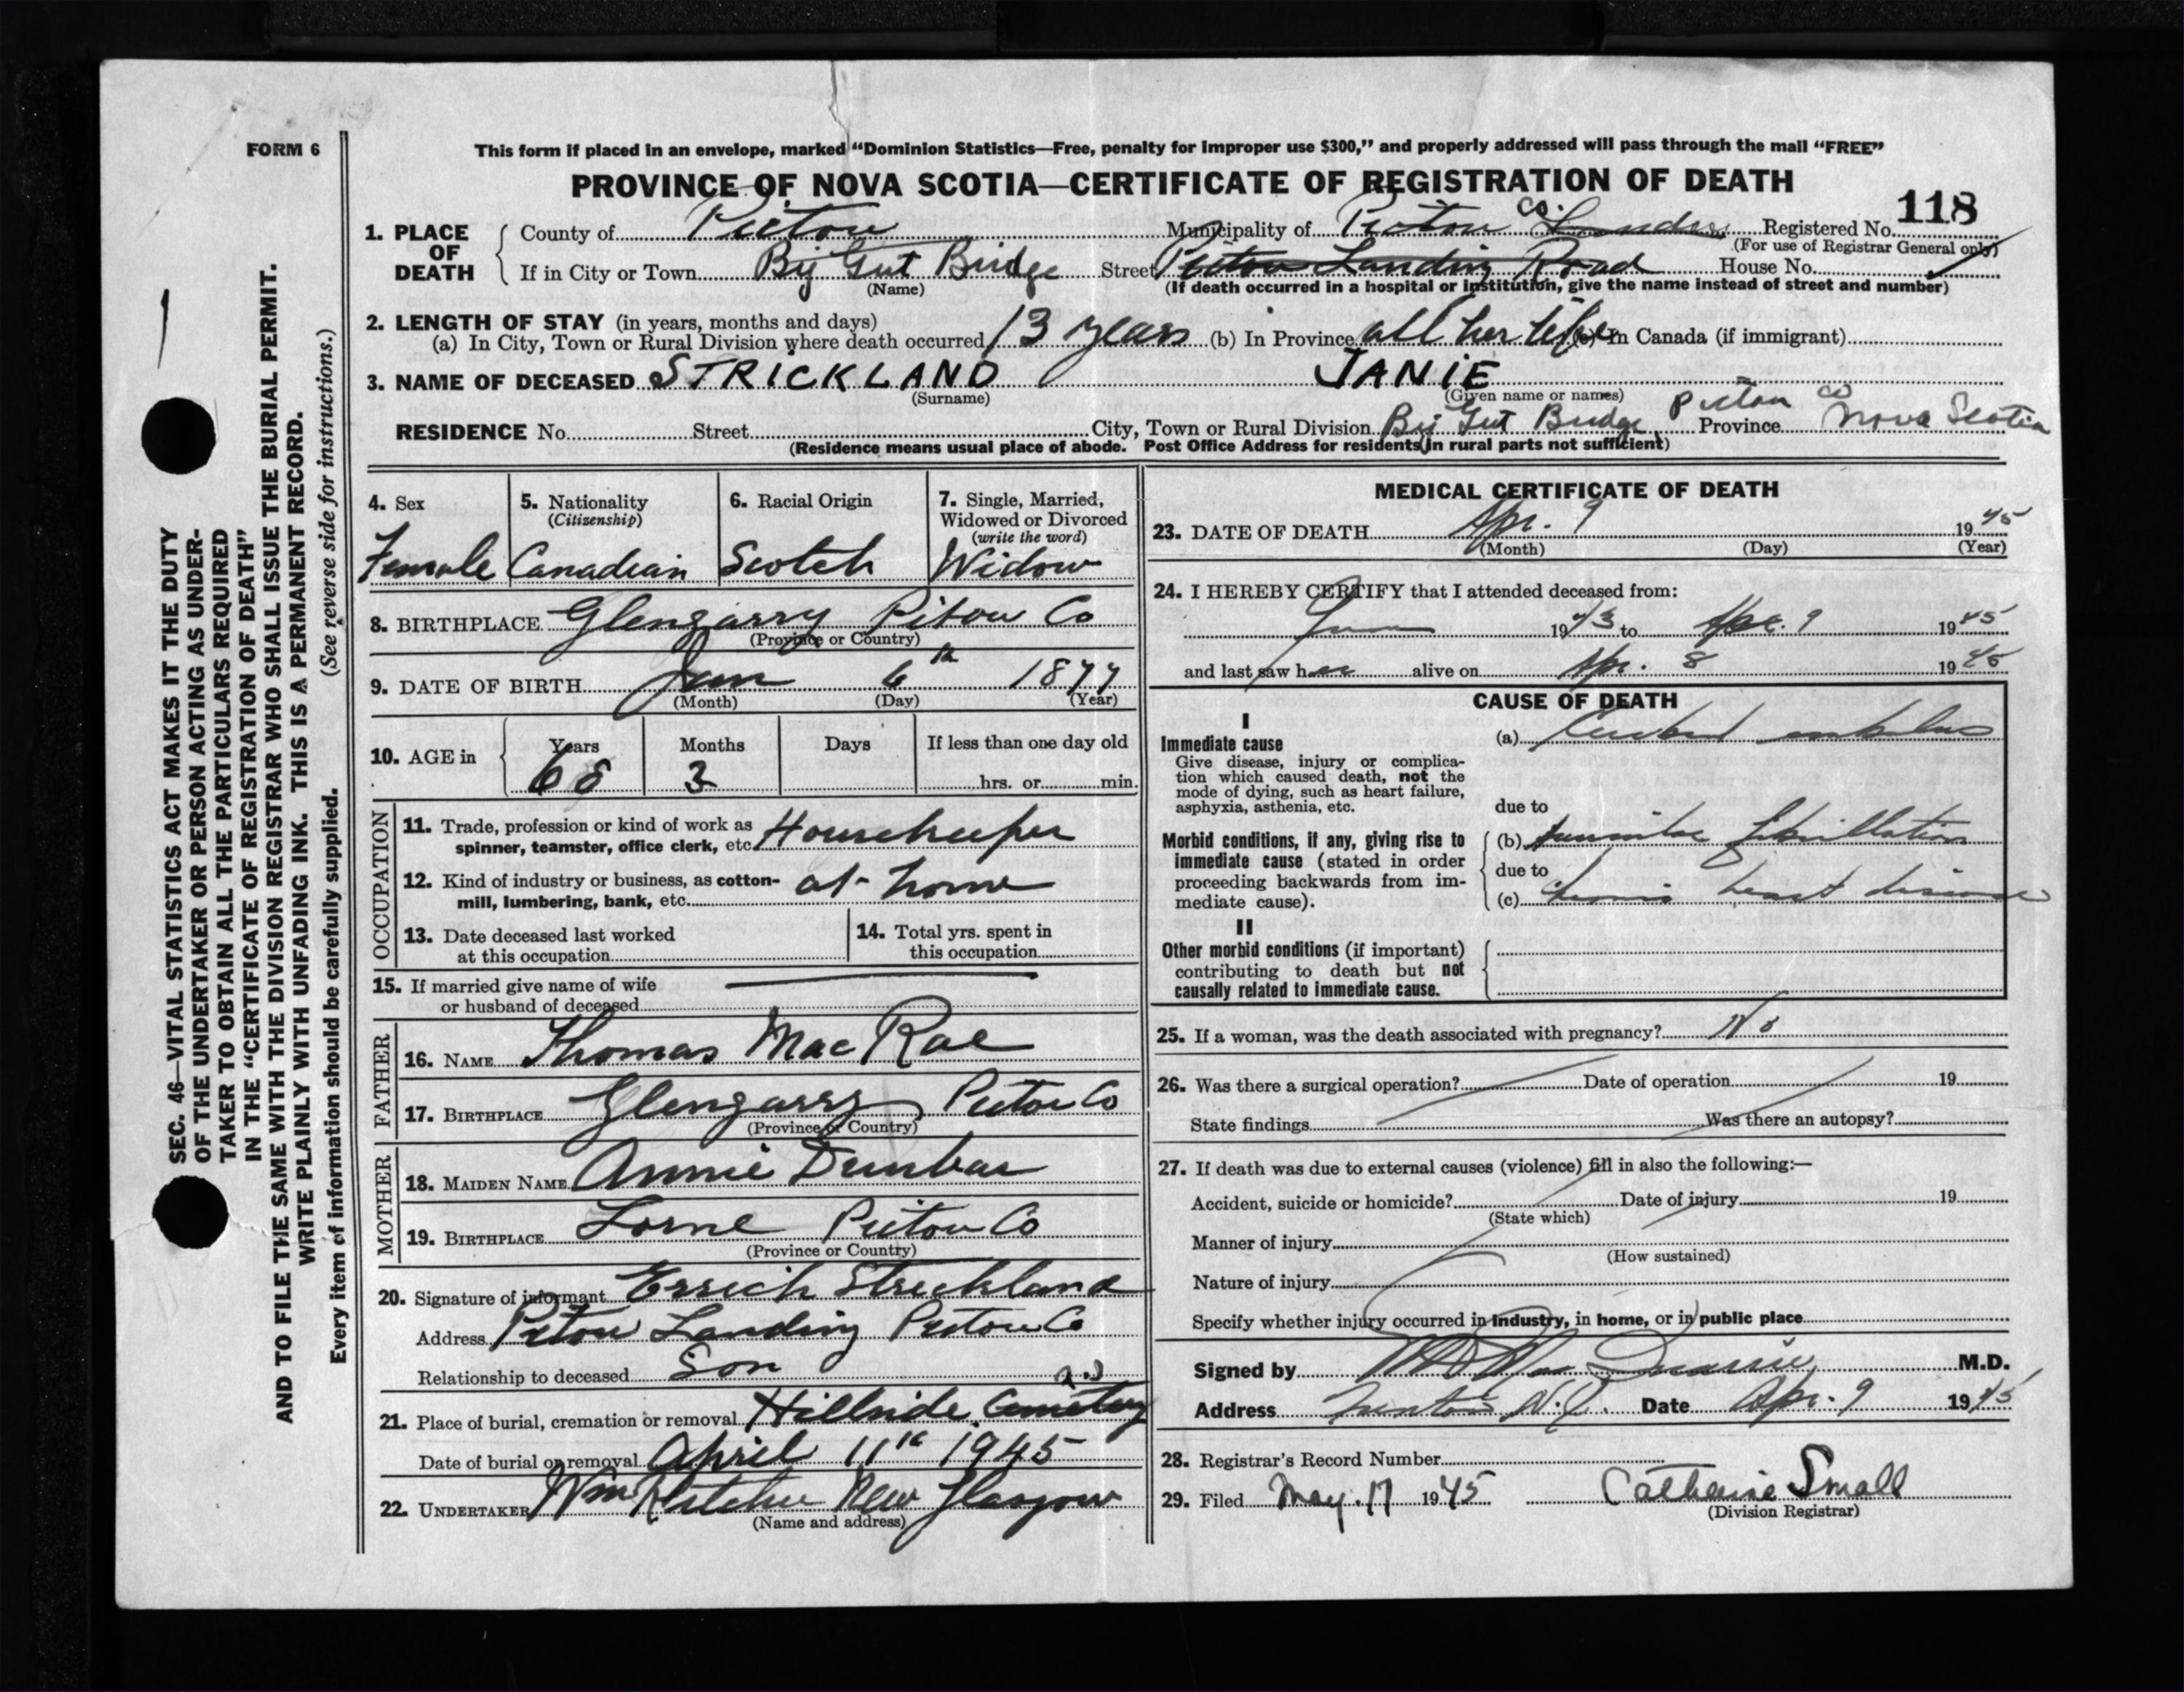 FORM 6
This form if placed in an envelope, marked “Dominion Statistics—Free, penalty for improper use $300,” and properly addressed will pass through the mail “FREE”
PROVINCE OF NOVA SCOTIA—CERTIFICATE OF REGISTRATION OF DEATH
118
1. PLACE OF DEATH
County of Pictou Municipality of Pictou Co. Landing Registered No.
(For use of Registrar General only)
If in City or Town Big Gut Bridge Street Pictou Landing Road House No.
(Name)
(If death occurred in a hospital or institution, give the name instead of street and number)
2. LENGTH OF STAY (in years, months and days)
(a) In City, Town or Rural Division where death occurred 13 years (b) In Province all her life (c) In Canada (if immigrant)
3. NAME OF DECEASED STRICKLAND JANIE
(Surname) (Given name or names)
RESIDENCE No. Street City, Town or Rural Division Big Gut Bridge Pictou Co Province Nova Scotia
(Residence means usual place of abode. Post Office Address for residents in rural parts not sufficient)
4. Sex
Female
5. Nationality
(Citizenship)
Canadian
6. Racial Origin
Scotch
7. Single, Married,
Widowed or Divorced
(write the word)
Widow
8. BIRTHPLACE Glengarry Pictou Co
(Province or Country)
9. DATE OF BIRTH Jan 6th 1877
(Month) (Day) (Year)
10. AGE in
Years Months Days If less than one day old
68 3 hrs. or min.
OCCUPATION
11. Trade, profession or kind of work as
spinner, teamster, office clerk, etc. Housekeeper
12. Kind of industry or business, as cotton-
mill, lumbering, bank, etc. at home
13. Date deceased last worked
at this occupation
14. Total yrs. spent in
this occupation
15. If married give name of wife
or husband of deceased
FATHER
16. NAME Thomas MacRae
17. BIRTHPLACE Glengarry Pictou Co
(Province or Country)
MOTHER
18. MAIDEN NAME Annie Dunbar
19. BIRTHPLACE Lorne Pictou Co
(Province or Country)
20. Signature of informant Errich Strickland
Address Pictou Landing Pictou Co
Relationship to deceased Son
21. Place of burial, cremation or removal Hillside Cemetery
Date of burial or removal April 11th 1945
22. UNDERTAKER Wm Fletcher New Glasgow
(Name and address)
MEDICAL CERTIFICATE OF DEATH
23. DATE OF DEATH Apr. 9 1945
(Month) (Day) (Year)
24. I HEREBY CERTIFY that I attended deceased from:
1943 to Apr. 9 1945
and last saw her alive on Apr. 8 1945
CAUSE OF DEATH
I
Immediate cause
Give disease, injury or complica-
tion which caused death, not the
mode of dying, such as heart failure,
asphyxia, asthenia, etc.
(a) embolus
due to
Morbid conditions, if any, giving rise to
immediate cause (stated in order
proceeding backwards from im-
mediate cause).
(b) fibrillation
due to
(c) chronic heart disease
II
Other morbid conditions (if important)
contributing to death but not
causally related to immediate cause.
25. If a woman, was the death associated with pregnancy? No
26. Was there a surgical operation? Date of operation 19
State findings Was there an autopsy?
27. If death was due to external causes (violence) fill in also the following:—
Accident, suicide or homicide? Date of injury 19
(State which)
Manner of injury
(How sustained)
Nature of injury
Specify whether injury occurred in industry, in home, or in public place
Signed by M.D.
Address Trenton N.S. Date Apr. 9 1945
28. Registrar's Record Number
29. Filed May. 17 1945 Catherine Small
(Division Registrar)
SEC. 46—VITAL STATISTICS ACT MAKES IT THE DUTY
OF THE UNDERTAKER OR PERSON ACTING AS UNDER-
TAKER TO OBTAIN ALL THE PARTICULARS REQUIRED
IN THE “CERTIFICATE OF REGISTRATION OF DEATH”
AND TO FILE THE SAME WITH THE DIVISION REGISTRAR WHO SHALL ISSUE THE BURIAL PERMIT.
WRITE PLAINLY WITH UNFADING INK. THIS IS A PERMANENT RECORD.
Every item of information should be carefully supplied. (See reverse side for instructions.)